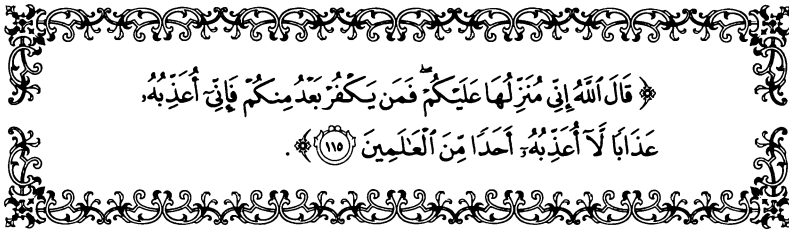 ﴿ قَالَ ٱللَّهُ إِنِّي مُنَزِّلُهَا عَلَيۡكُمۡۖ فَمَن يَكۡفُرۡ بَعۡدُ مِنكُمۡ فَإِنِّيٓ أُعَذِّبُهُۥ
عَذَابٗا لَّآ أُعَذِّبُهُۥٓ أَحَدٗا مِّنَ ٱلۡعَٰلَمِينَ ١١٥ ﴾ .